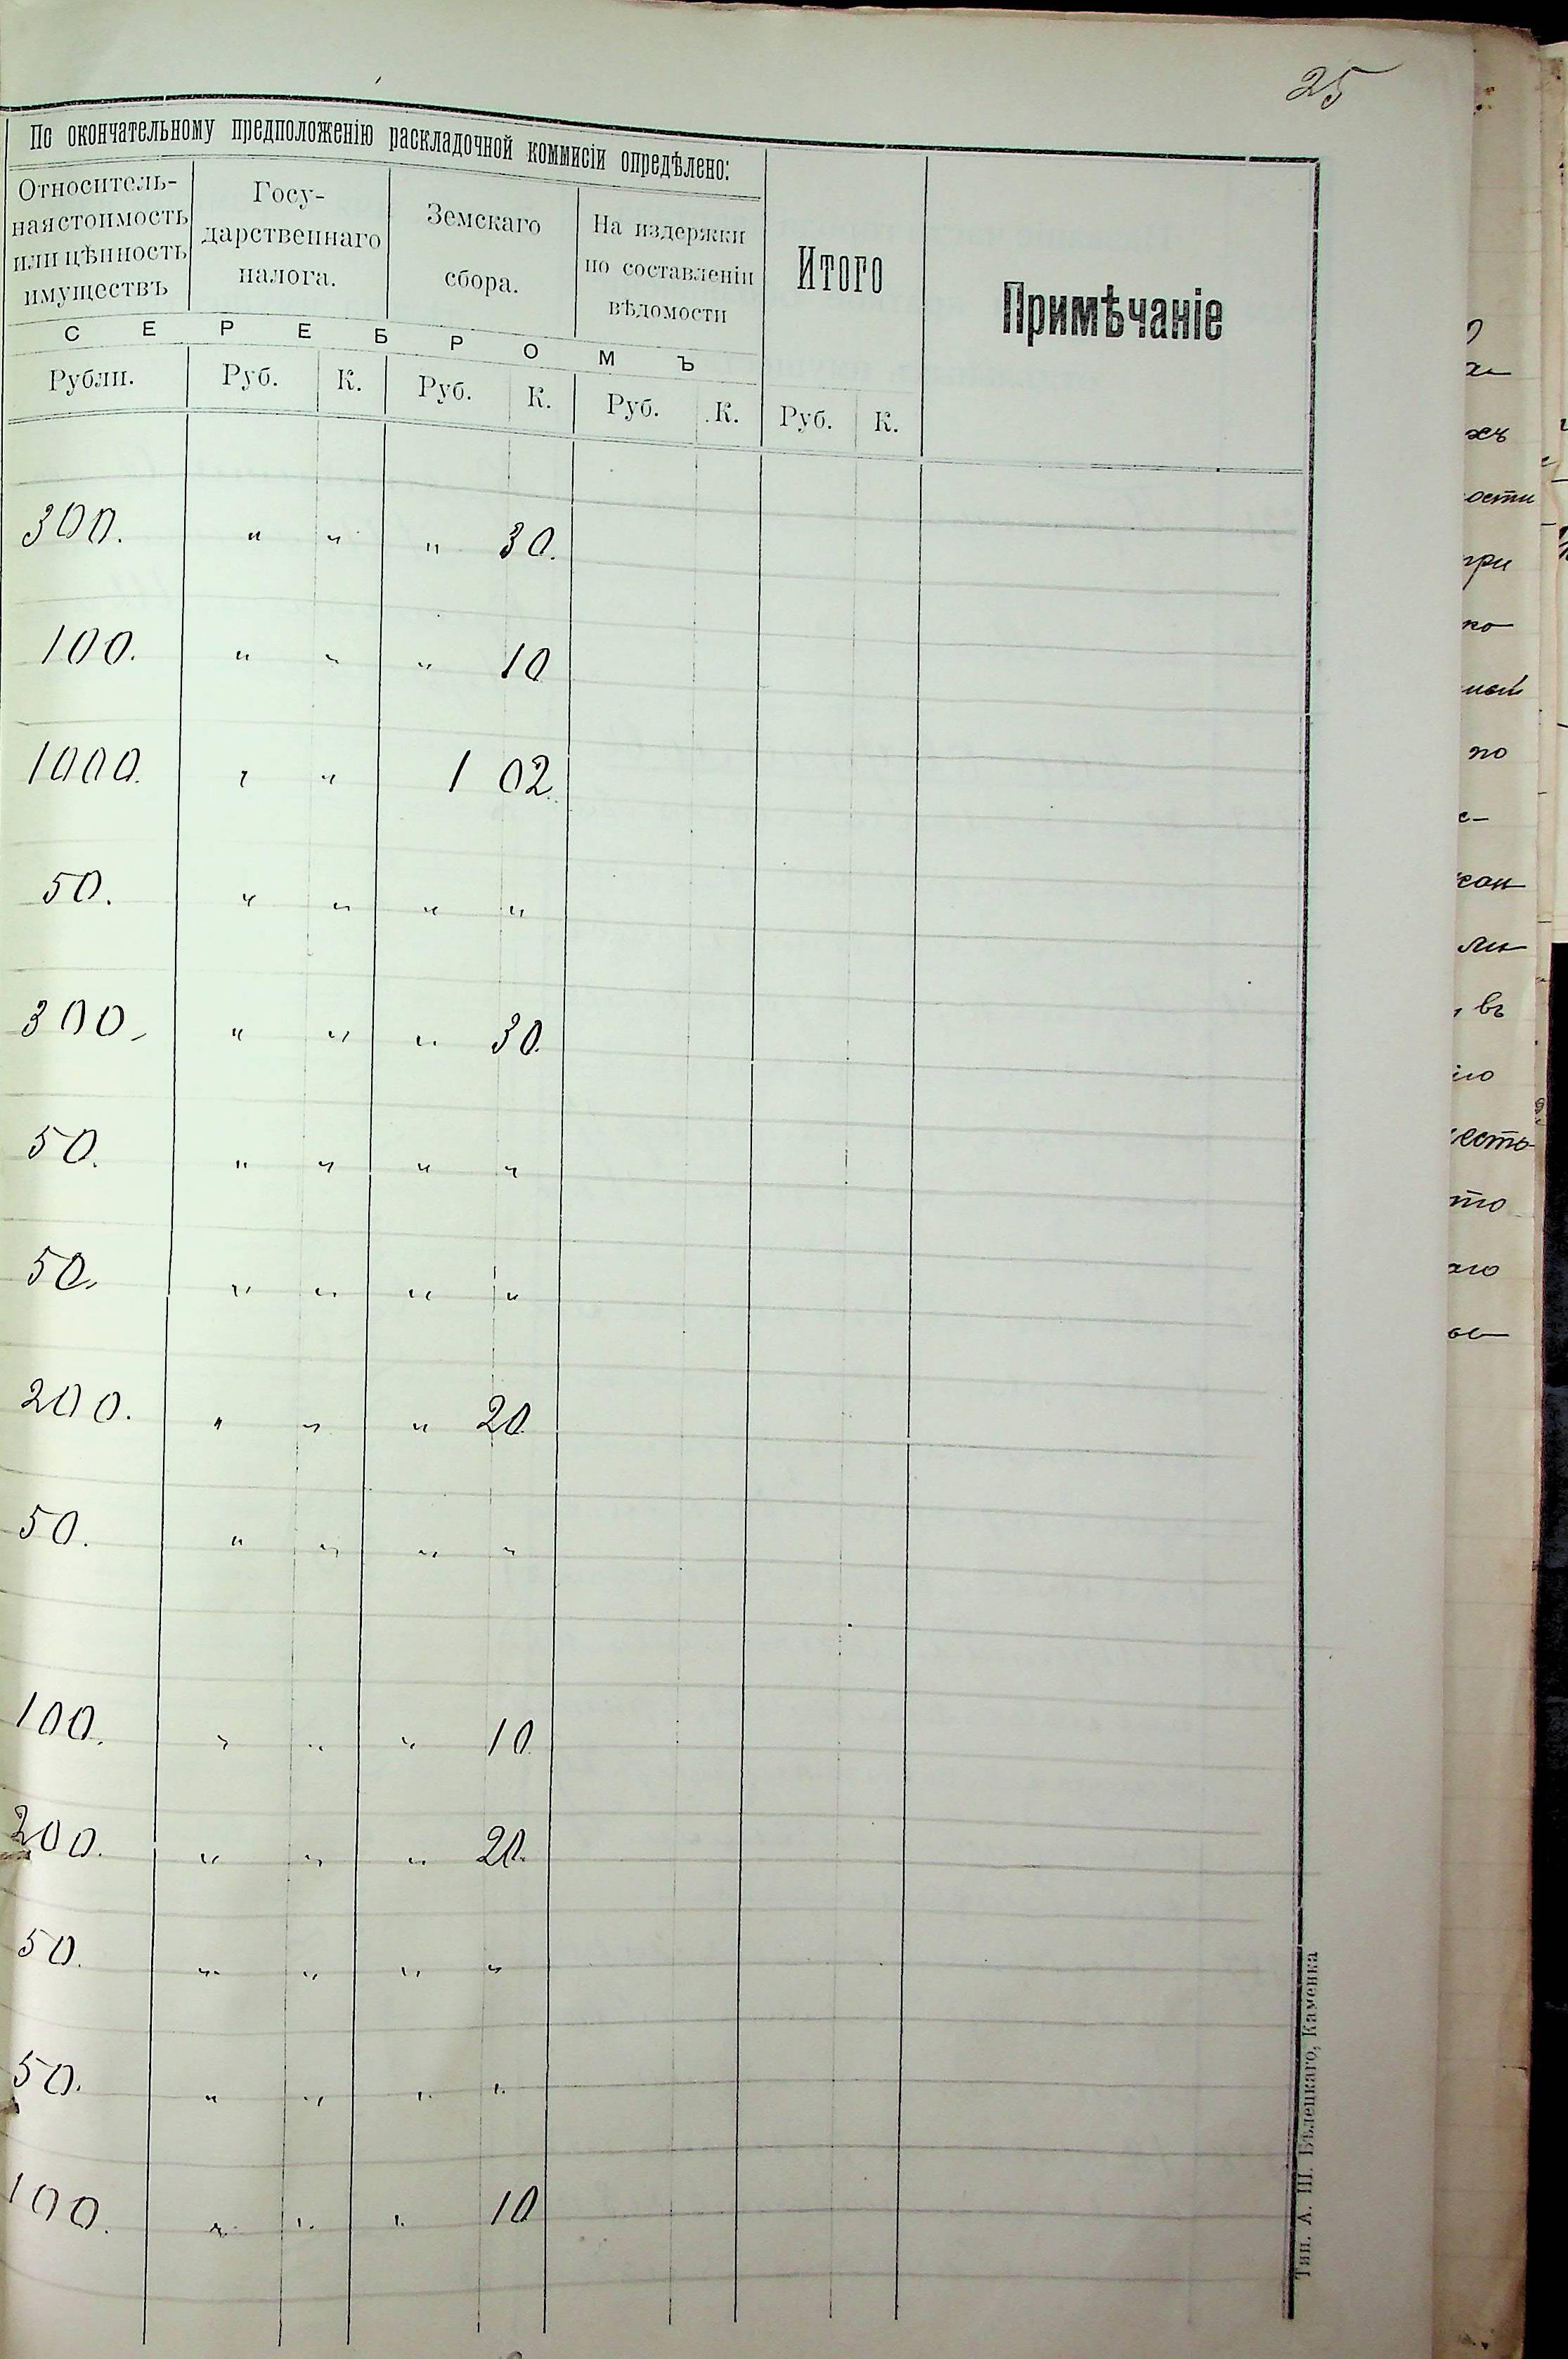 25
По окончательному предположенію раскладочной коммисіи опредѣлено:
Относитель-
ная стоимость
или цѣнность
имуществъ
Госу-
дарственнаго
налога.
Земскаго
сбора.
На издержки
по составленіи
вѣдомости
Итого
Примѣчаніе
С Е Р Е Б Р О М Ъ
Рубли. Руб. К. Руб. К. Руб. К. Руб. К.
300. " " " 30.
100. " " " 10
1000. " " 1 02.
50. " " " "
300. " " " 30.
50. " " " "
50. " " " "
200. " " " 20.
50. " " " "
100. " " " 10.
200. " " " 20.
50. " " " "
50. " " " "
100. " " " 10
Тип. А. Ш. Бѣлецкаго, Каменка
хъ
ости
при
ко
ной
по
с-
ли
, въ
его
есть
то
аго